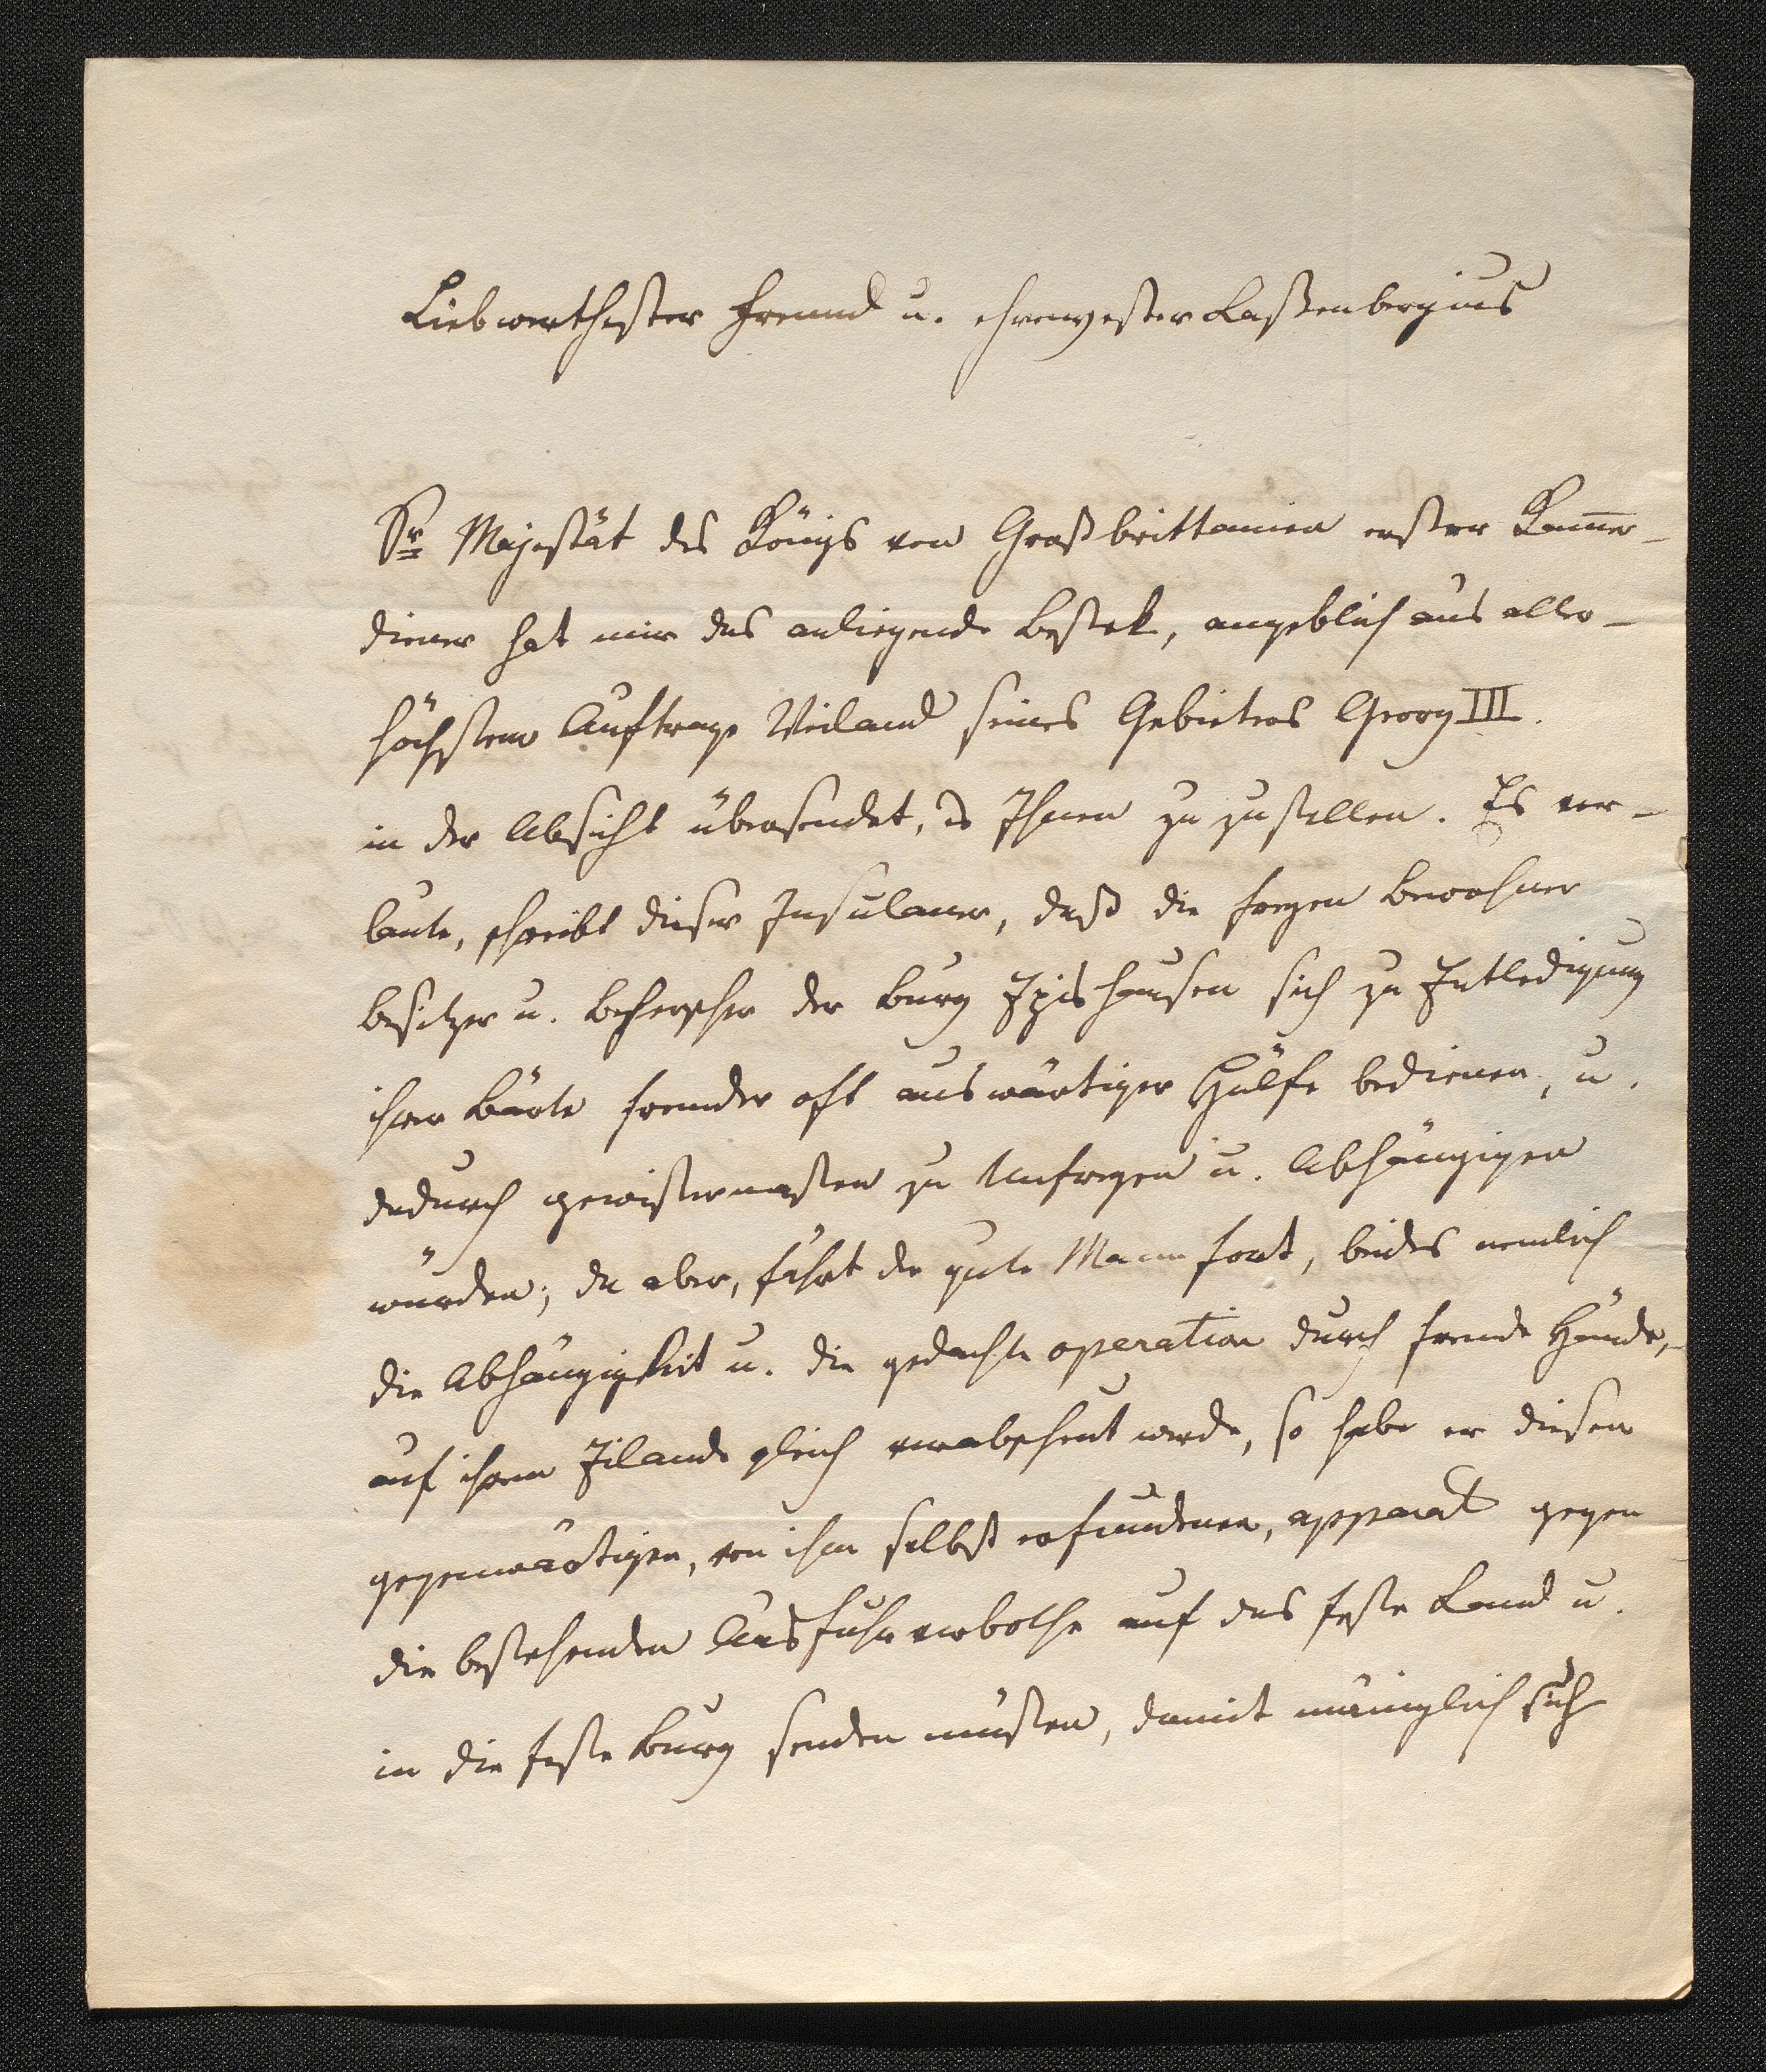 Liebwerthester Freund u. ehrenvester Laßenbergius
Sr Majestät des Königs von Großbrittanien erster Kam̅er-
diener hat mir das anliegende Bestek, angeblich aus aller-
höchstem Auftrage Weiland seines Gebieters Georg III.
in der Absicht übersendet, es Ihnen zu zustellen. Es ver-
laute, schreibt dieser Insulaner, daß die freyen Bewohner
Besitzer u. Beherscher der Burg Ipishausen sich zu Entledigung
ihrer Bärte fremder oft auswärtiger Hülfe bedienen, u.
dadurch gewissermassen zu Unfreyen u. Abhängigen
würden; da aber, fährt der gute Mann fort, beides nemlich
die Abhängigkeit u. die gedachte operation durch fremde Hände,
auf ihrem Eilande gleich verabscheut werde, so habe er diesen
gegenwärtigen, von ihm selbst erfundenen, apparat gegen
die bestehenden Ausfuhrverbothe auf das feste Land u.
in die feste Burg senden müssen, damit mäniglich sich